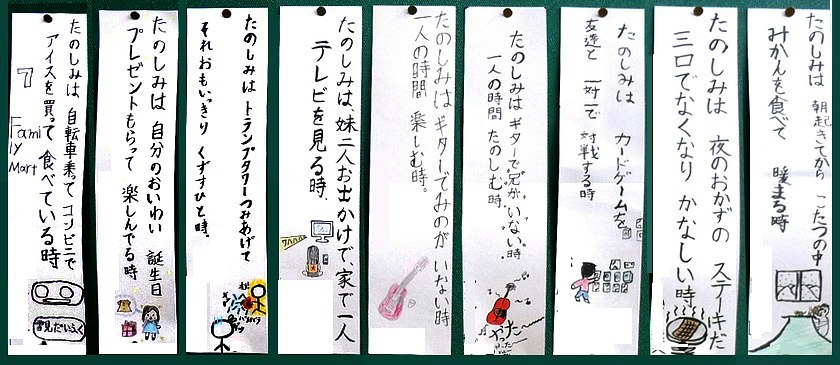 たのしみは 朝起きてから こたつの中
みかんを食べて 暖まる時
たのしみは 夜のおかずの ステーキだ
三口でなくなり かなしい時
たのしみは カードゲームを
友達と 一対一で 対戦する時
たのしみは ギターで兄が いない時
一人の時間 たのしむ時。
やったー
たのしみは ギターでみのが いない時
一人の時間 楽しむ時。
たのしみは、妹二人お出かけで、家で一人
テレビを見る時、
ワハハハ
たのしみは トランプタワーつみあげて
それおもいっきり くずすひと時、
たのしみは 自分のおいわい 誕生日
プレゼントもらって 楽しんでる時
たのしみは 自転車乗って コンビニで
アイスを買って 食べている時
7
Fami
ly
Mart
雪見だいふく